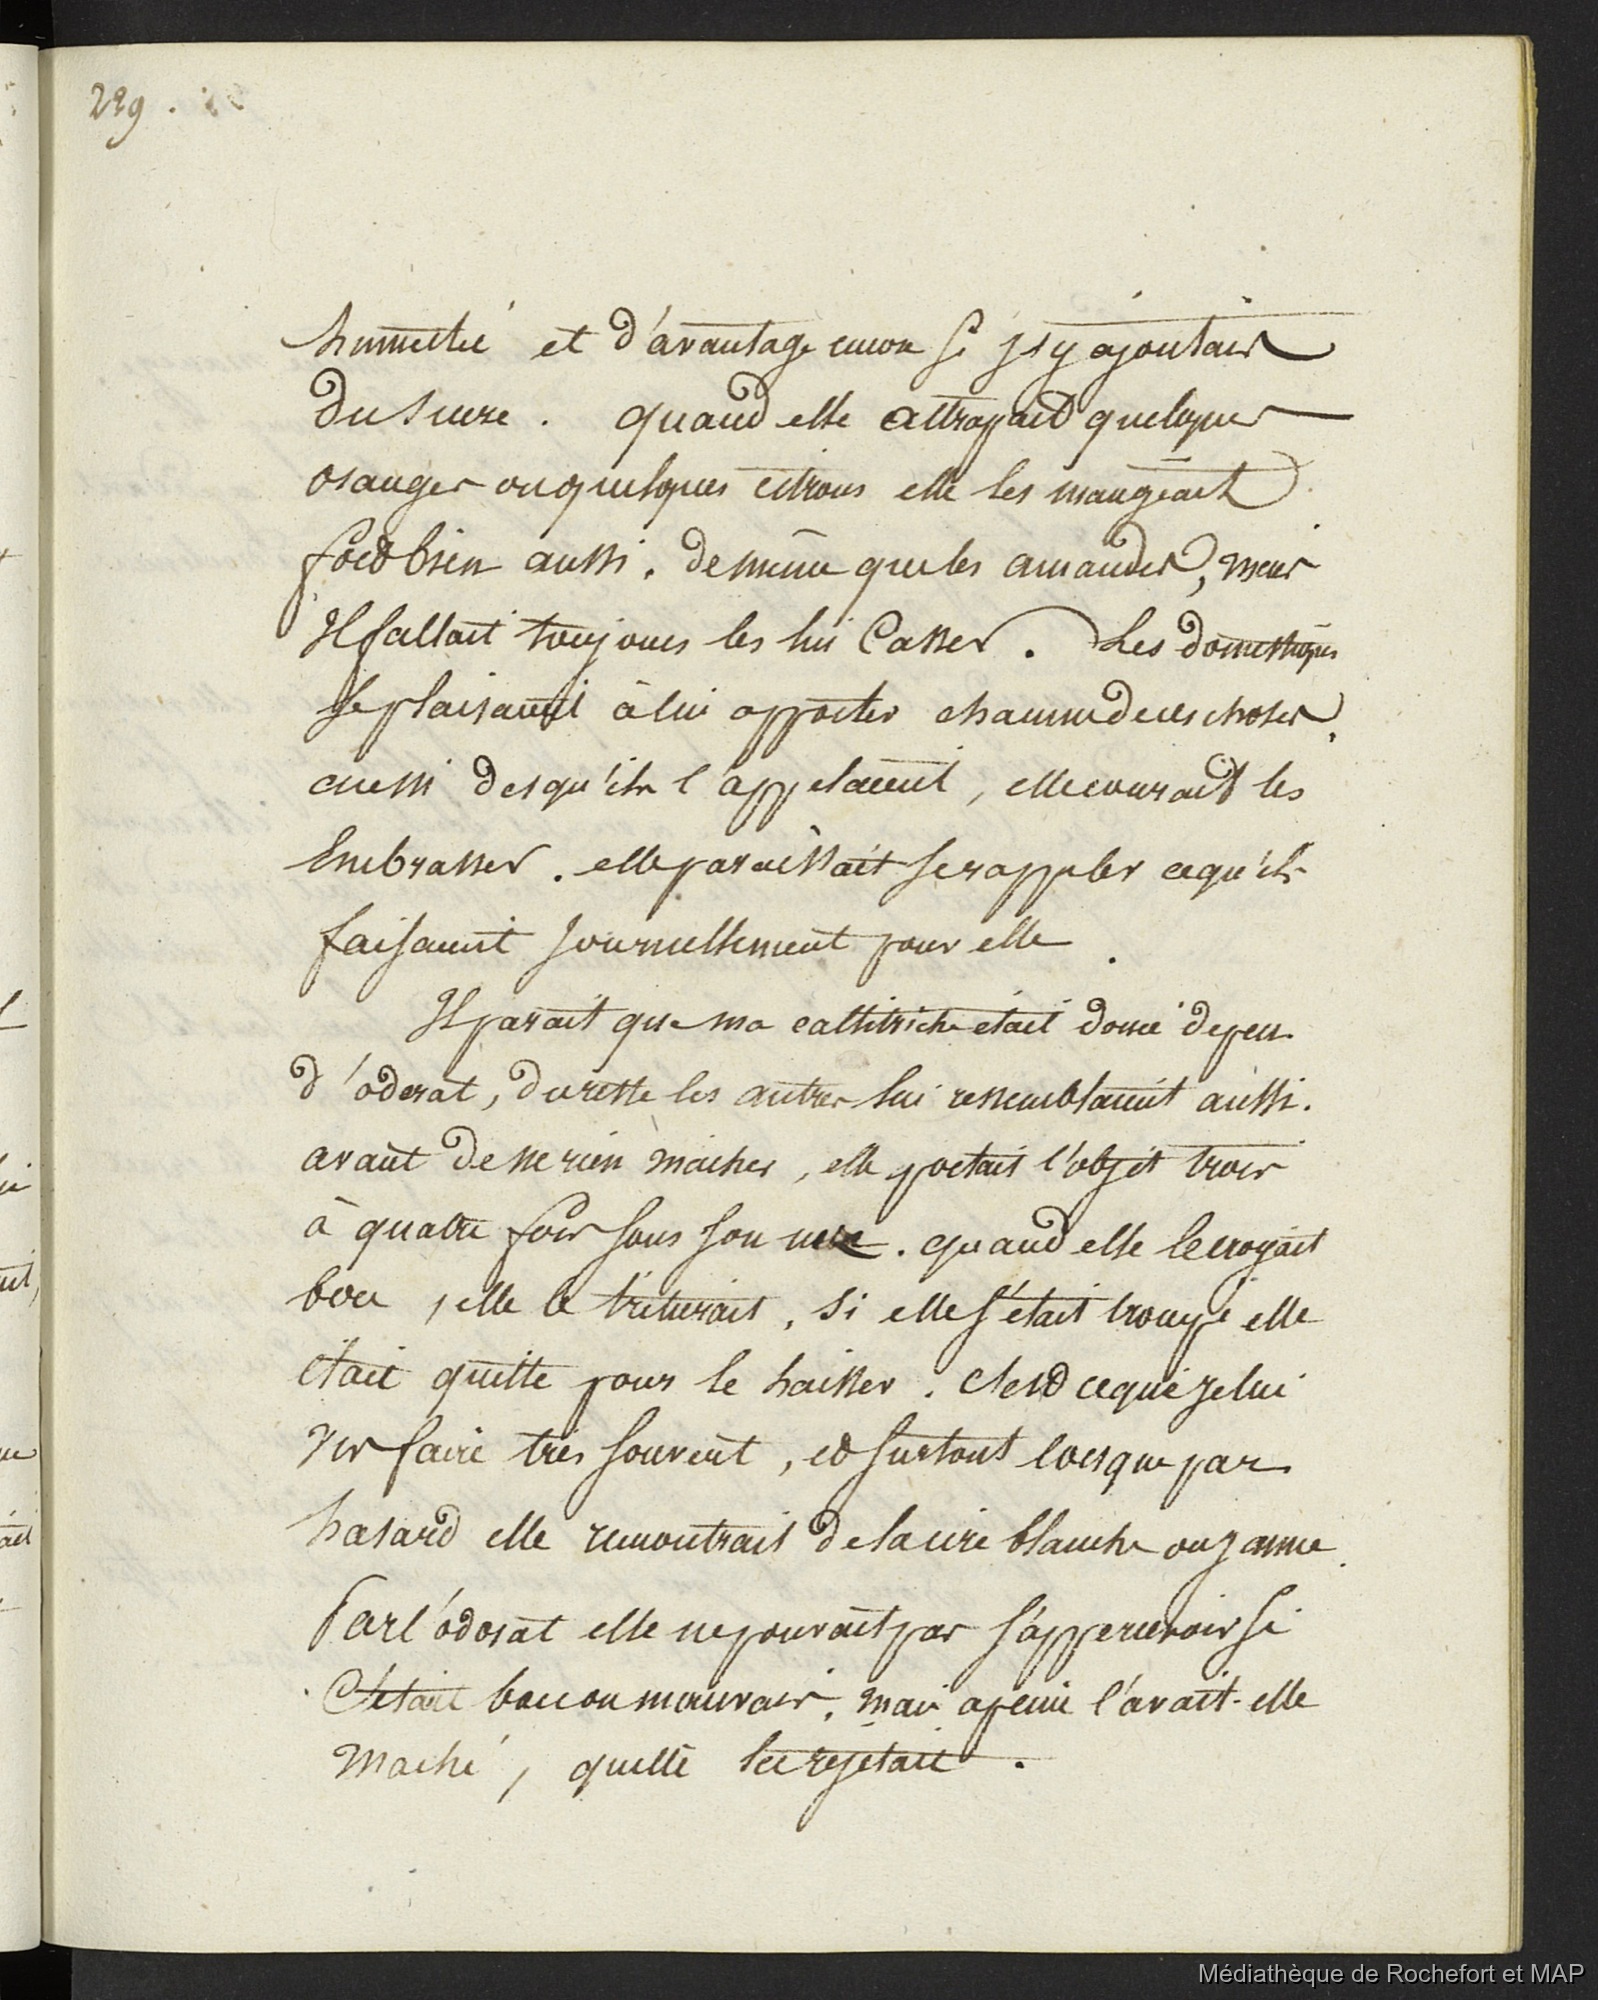 229.
humecté et d'avantage encore si j'y ajoutais
du sucre. quand elle attrapait quelques
oranges ou quelques citrons elle les mangeait
fort bien aussi. de même que les amandes, mais
Il fallait toujours les lui Casser. Les domestiques
se plaisaient à lui apporter chacune de ces choses,
aussi des qu'ils l'appelaient, elle courait les
Embrasser. elle paraissait se rappeler ce qu'ils
faisaient journellement pour elle.
Il parait que ma callitriche était doué de peu
d'odorat, du reste les autres lui ressemblaient aussi.
avant de ne rien macher, elle portait l'objet trois
à quatre fois sous son nez. quand elle le croyait
bon, elle le triturait, si elle s'était trompé elle
était quitte pour le laisser. C'est ce que je lui
vis faire très souvent, et surtout lorsque par
hasard elle rencontrait de la cire blanche ou jaune.
Par l'odorat elle ne pouvait pas s'appercevoir si
C'était bon ou mauvais, mais a peine l'avait-elle
maché, quelle le rejetait.
Médiathèque de Rochefort et MAP